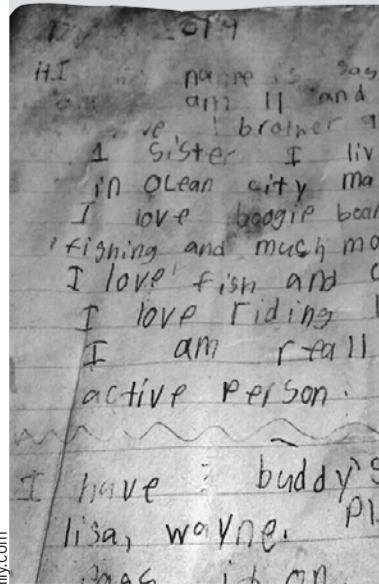 HI name is
am 11 and
brother
1 sister I liv
in Ocean city ma
I love boogie boar
fishing and much mo
I love fish and
I love riding
I am reall
active person.
I have buddy's
lisa, wayne. Pl
it on
ily.com